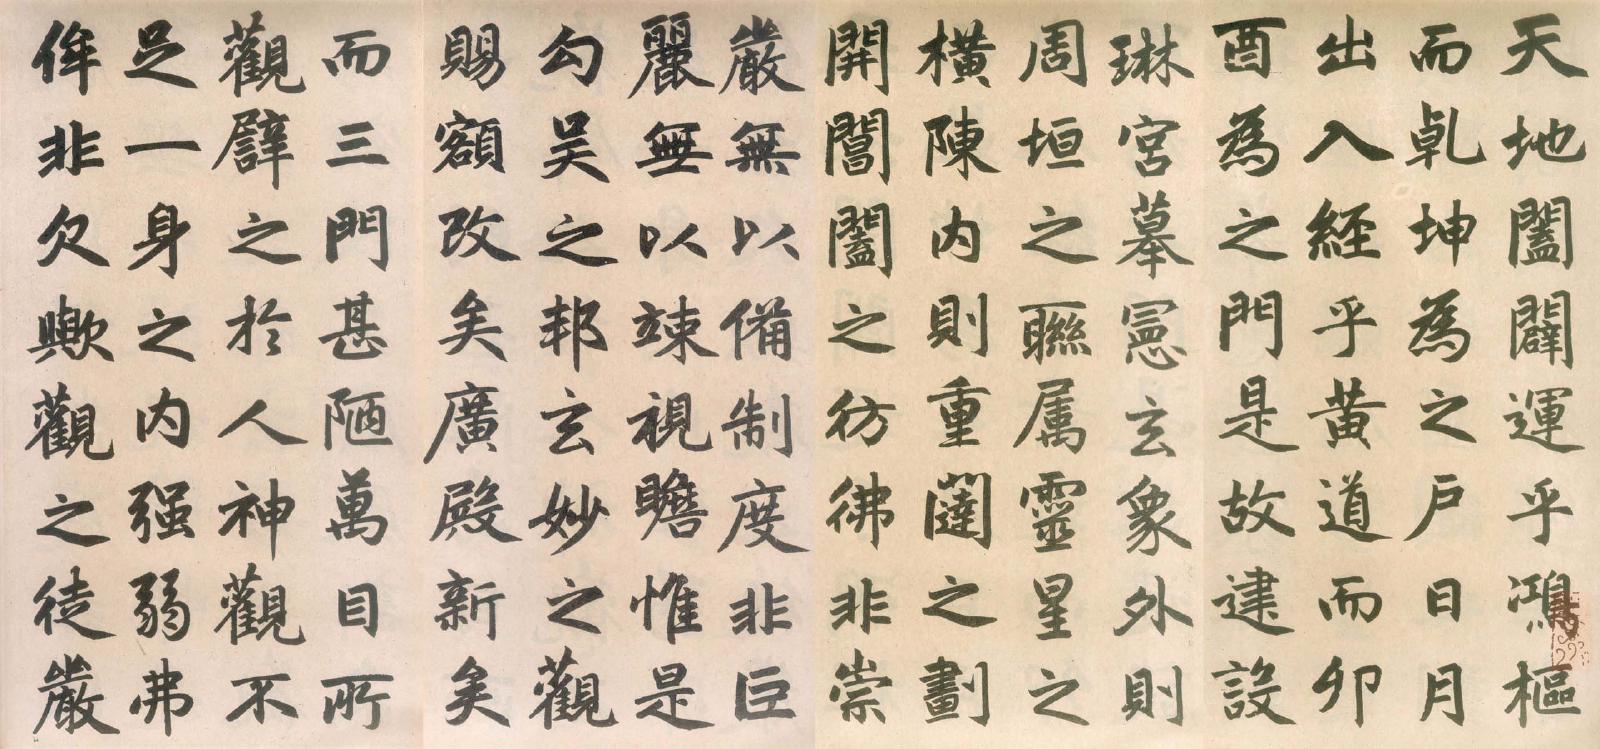 天地闔闢運乎鴻樞
而乹坤為之戶日月
出入經乎黃道而卯
酉為之門是故建設
琳宮摹憲玄象外則
周垣之聯属靈星之
橫陳内則重闥之劃
開閶闔之彷彿非崇
嚴無以備制度非巨
麗無以竦視瞻惟是
勾吴之邦玄妙之觀
賜額改矣廣殿新矣
而三門甚陋萬目所
觀譬之於人神觀不
足一身之内强弱弗
侔非欠歟觀之徒嚴